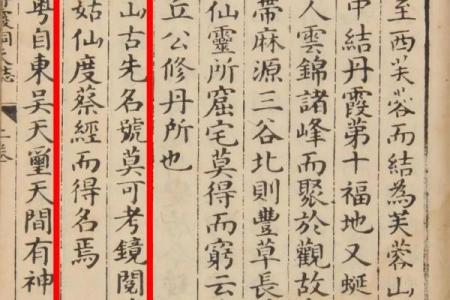 至西芙蓉而結為芙蓉山
中結丹霞第十福地又蜒
人雲錦諸峰而聚於觀故
帶麻源三谷北則豐草長
仙靈所窟宅莫得而窮云
丘公修丹所也
山古先名號莫可考鏡閱
姑仙度蔡經而得名焉
粵自東吳天璽天間有神